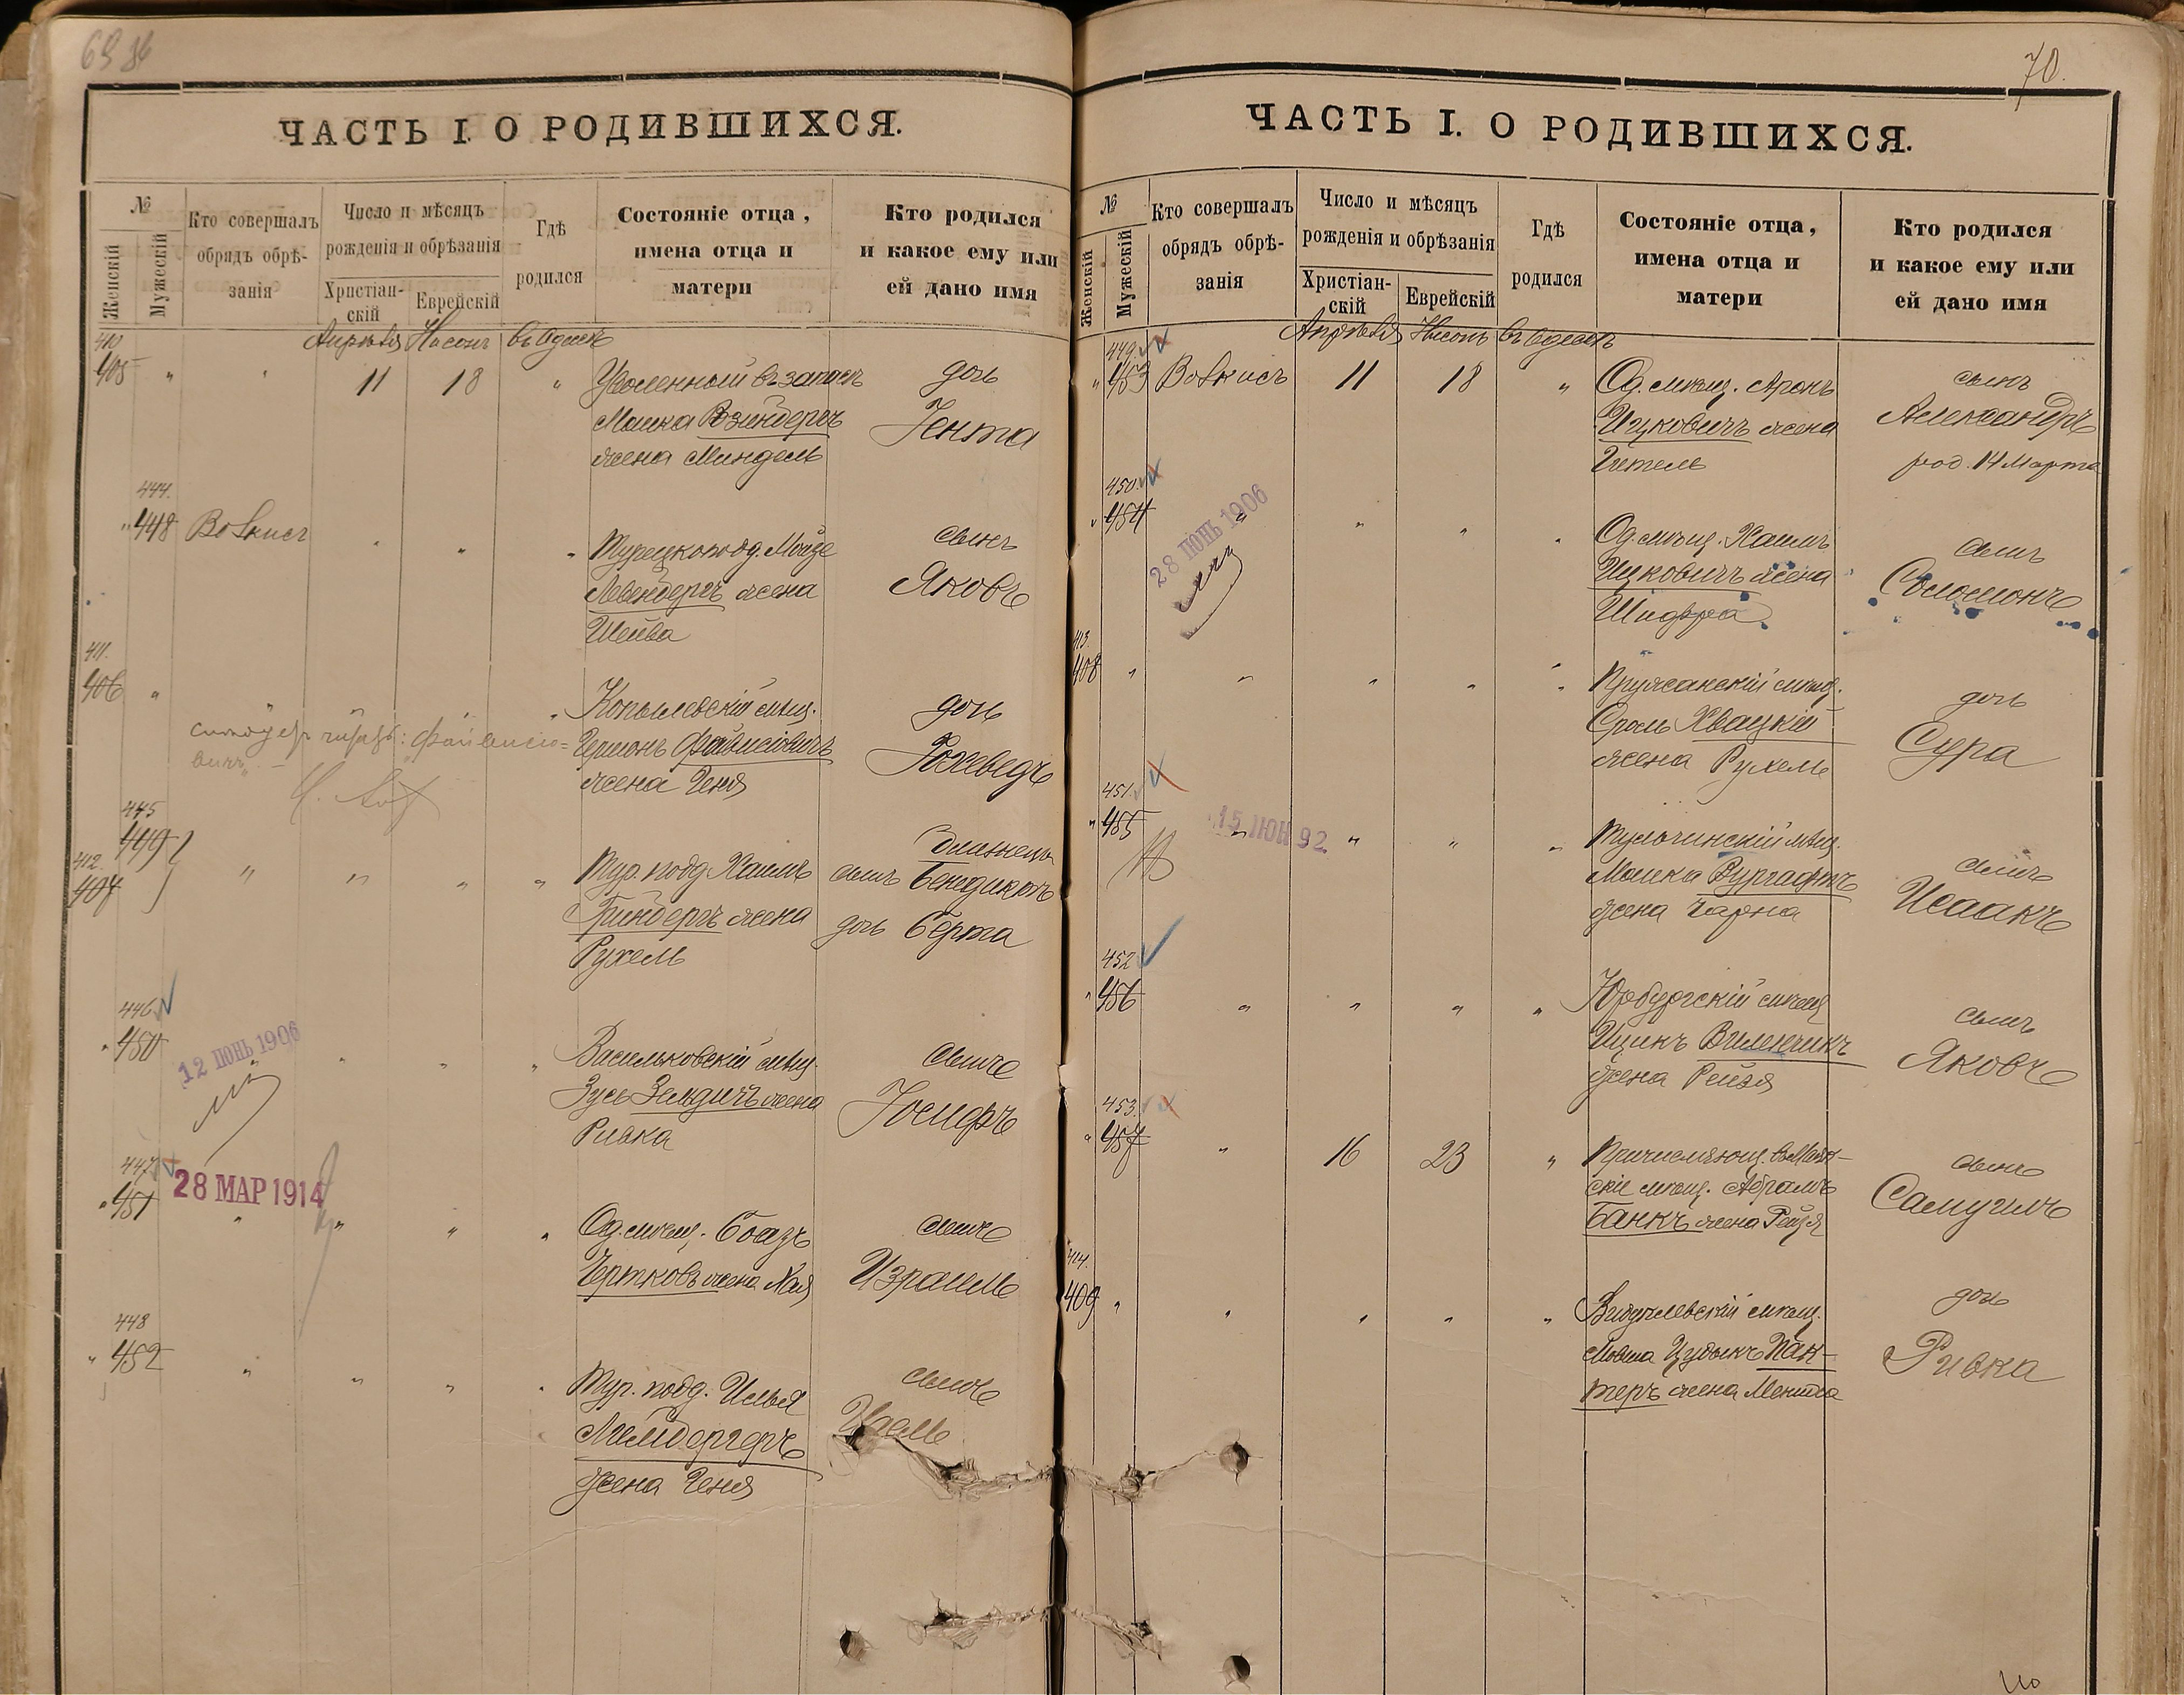 ЧАСТЬ I. О РОДИВШИХСЯ.
№
Женскій
Мужескій
Кто совершалъ
обрядъ обрѣ-
занія
Число и мѣсяцъ
рожденія и обрѣзанія
Христіан-
скій
Еврейскій
Гдѣ
родился
Состояніе отца,
имена отца и
матери
Кто родился
и какое ему или
ей дано имя
Апрѣля Нисонъ въ Одессѣ
410
405 " 11 18 "
Уволенный въ запасъ
Мошка Розинбергъ
жена Миндель
дочь
Гента
444.
" 448 Волкисъ
Турецкопод. Мойзе
Левенбергъ жена
Шейва
сынъ
Яковъ
411.
406 "
Копылевскій мѣщ.
Гершонъ Файвисіовичъ
жена Геня
дочь
Іохеведъ
445
449
412.
407
Тур. подд. Хаимъ
Гринбергъ жена
Рухель
близнецы
сынъ Бенедиктъ
дочь Берта
446
" 450
12 ІЮНЬ 1906
Васильковскій мѣщ.
Зусь Зельдичъ жена
Ривка
сынъ
Іосифъ
447
" 451
28 МАР 1914
Од. мѣщ. Боазъ
Чертковъ жена Хая
сынъ
Израиль
448
" 452
Тур. подд. Илья
жена Геня
сынъ
70.
ЧАСТЬ I. О РОДИВШИХСЯ.
№
Женскій
Мужескій
Кто совершалъ
обрядъ обрѣ-
занія
Число и мѣсяцъ
рожденія и обрѣзанія
Христіан-
скій
Еврейскій
Гдѣ
родился
Состояніе отца,
имена отца и
матери
Кто родился
и какое ему или
ей дано имя
Апрѣля Нисонъ въ Одессѣ
449.
" 453 Волкисъ 11 18 "
Од. мѣщ. Аронъ
Ицковичъ жена
Гитель
сынъ
Александръ
род. 14 Марта
450.
" 454
28 ІЮНЬ 1906
Од. мѣщ. Хаимъ
Ицковичъ жена
Шифра
сынъ
Соломонъ
413.
408 "
Пружанскій мѣщ.
Сроль Хвацкій
жена Рухель
дочь
Сура
451.
" 455
15 ІЮН 92
Тульчинскій мѣщ.
Мошка Вургафтъ
жена Чарна
сынъ
Исаакъ
452
" 456
Юрбургскій мѣщ.
Ицикъ Виленчикъ
жена Рейзя
сынъ
Яковъ
453.
" 457 " 16 23 "
скіе мѣщ. Абрамъ
Банкъ жена Рейзя
сынъ
Самуилъ
414.
409 "
мѣщ.
Мовша Цудыкъ Пан-
теръ жена
дочь
Ривка